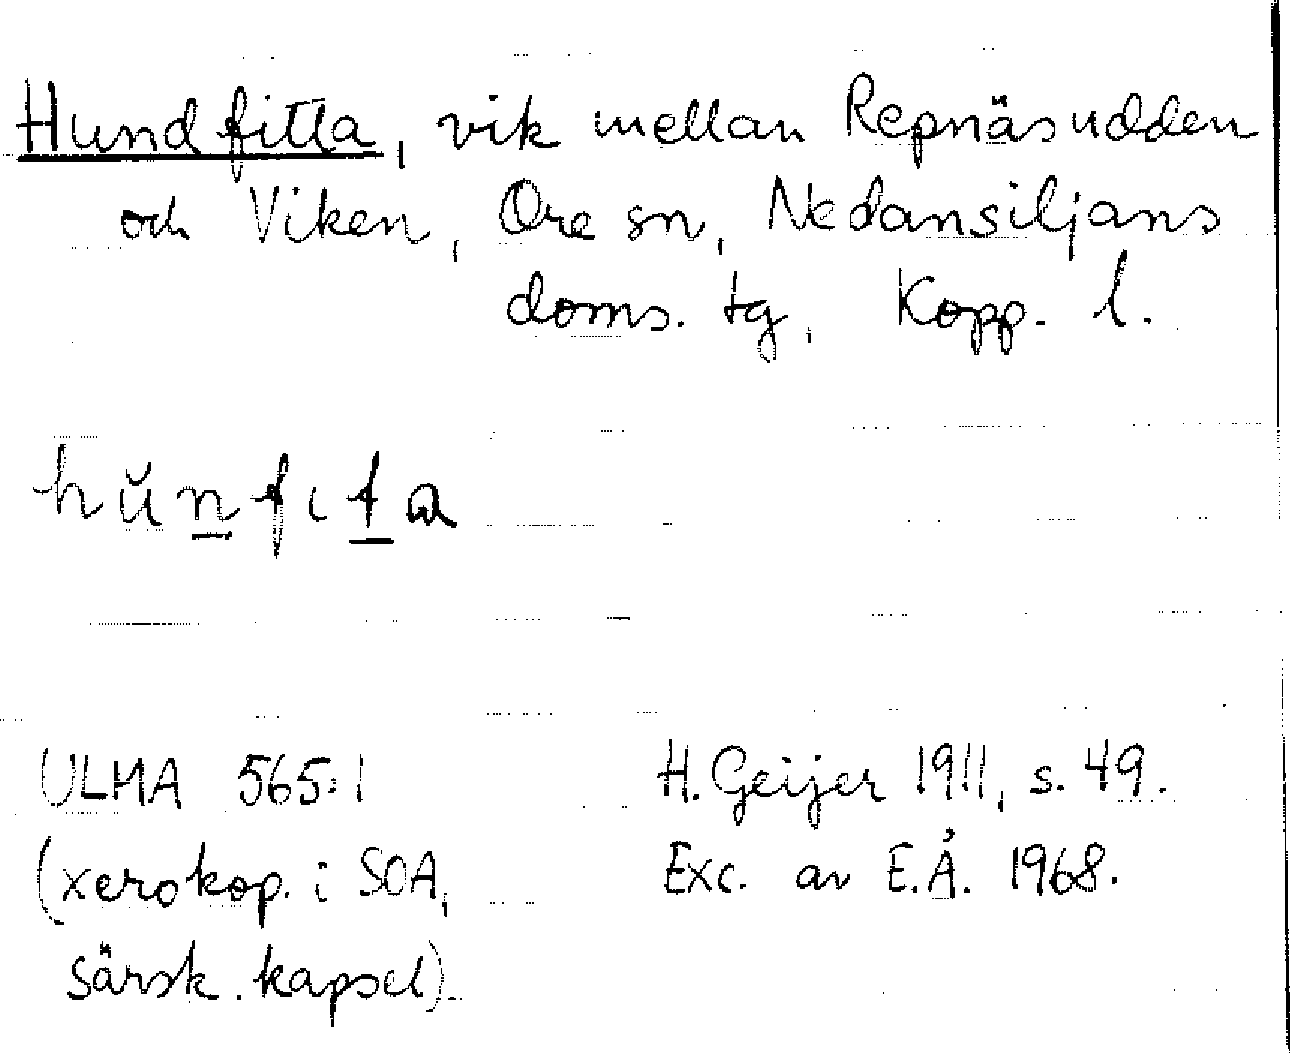 Hundfitta, vik mellan Repnäsudden
och Viken, Ore sn, Nedansiljans
doms. tg, Kopp. l.
hŭn̲fɩt̲a
ULMA 565:1
(xerokop. i SOA,
särsk. kapsel).
H. Geijer 1911, s. 49.
Exc. av E.Å. 1968.